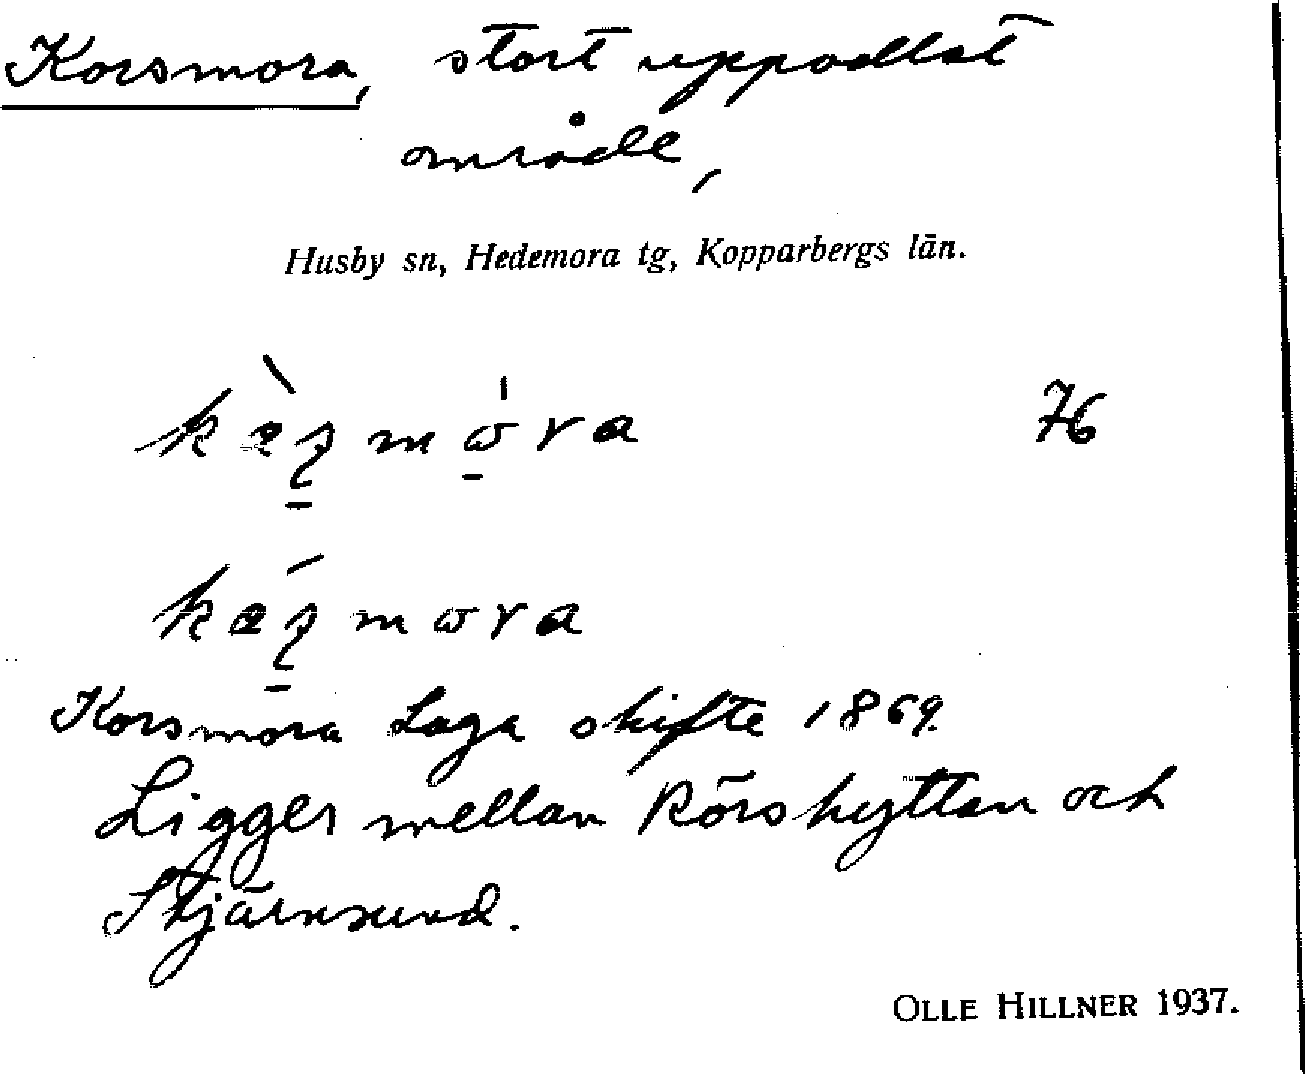 Korsmora, stort uppodlat
område,
Husby sn, Hedemora tg, Kopparbergs län.
76
Korsmora Laga skifte 1869.
Ligger mellan Rörshyttan och
Stjärnsund.
OLLE HILLNER 1937.